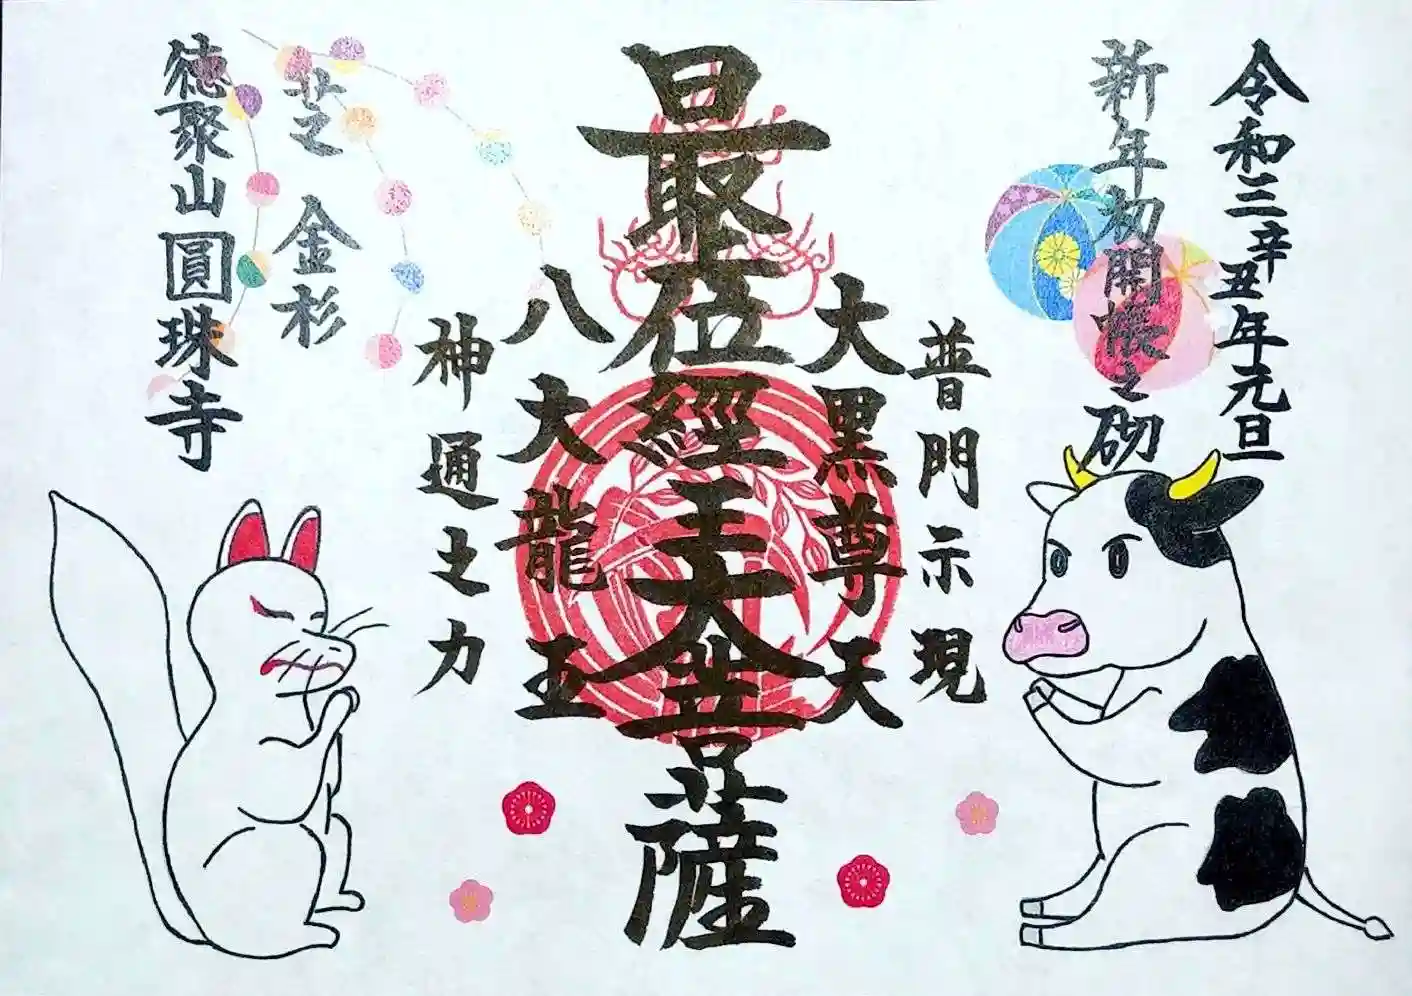 令和三辛丑年元旦
新年初開帳之砌
普門示現
大黒尊天
最位經王大菩薩
八大龍王
神通之力
芝 金杉
徳聚山圓珠寺